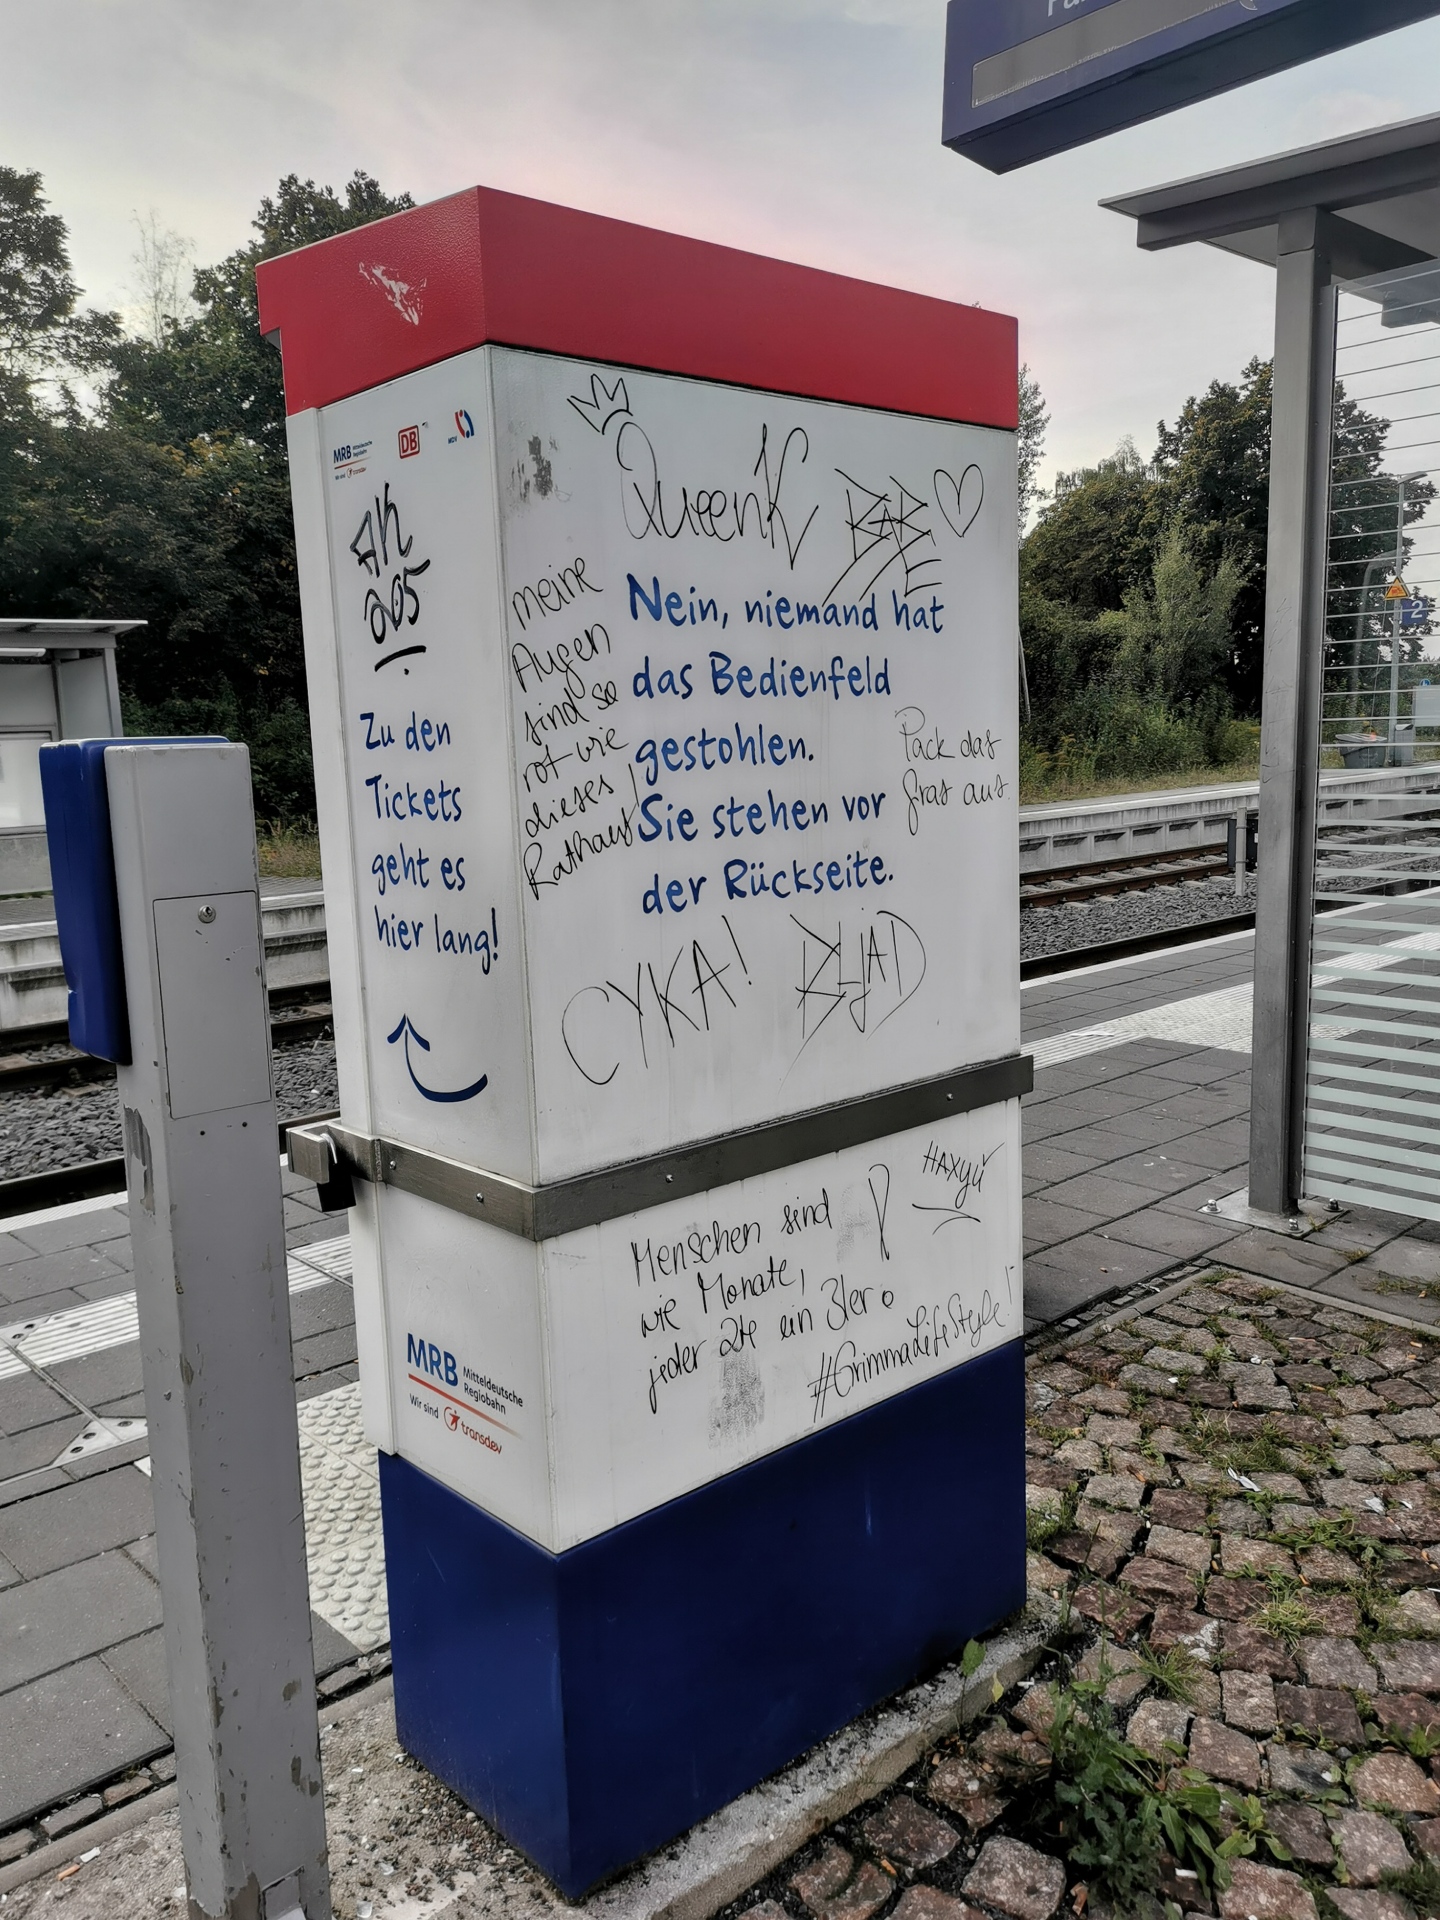 MRB Mitteldeutsche
Regiobahn
Wir sind transdev
DB
MDV
AK
205
Zu den
Tickets
geht es
hier lang!
MRB Mitteldeutsche
Regiobahn
Wir sind transdev
QueenK
BABE
Nein, niemand hat
das Bedienfeld
gestohlen.
Sie stehen vor
der Rückseite.
meine
Augen
sind so
rot wie
dieses
Rathaus!
Pack das
Gras aus
CYKA! BLJAD
Menschen sind
wie Monate,
jeder 2te ein 3ler!
НАХУЙ
#GrimmaLifeStyle!
2